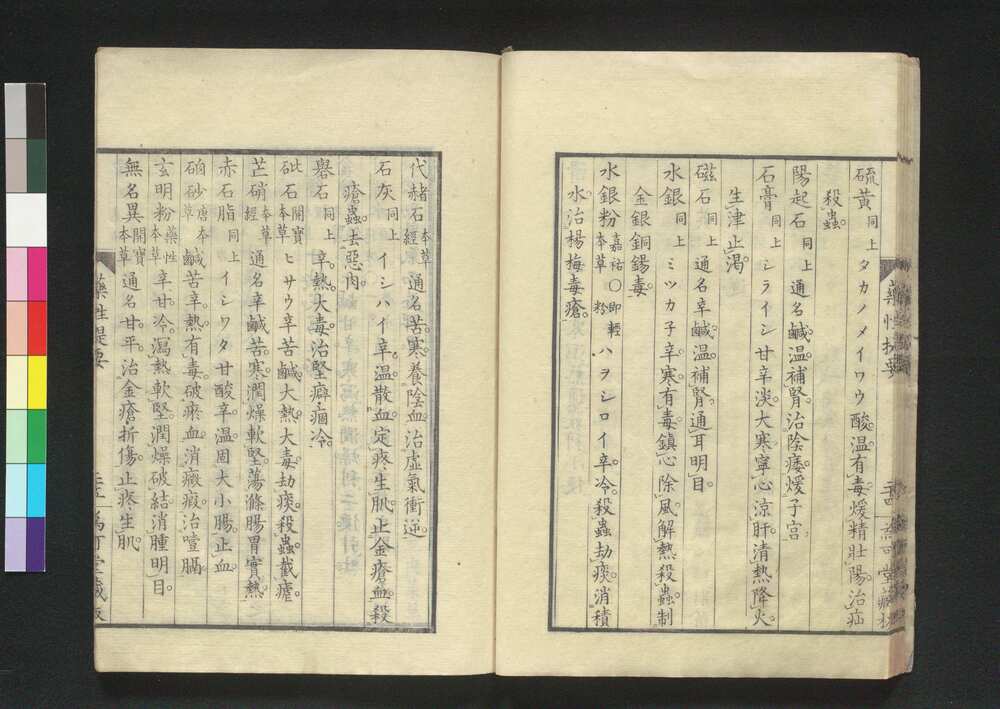 硫黄同上 タカノメイワウ 酸。温。有毒。煖精壮陽。治疝
殺蟲。
陽起石同上 通名 鹹。温。補腎。治陰痿。煖子宮
石膏同上 シライシ 甘辛淡。大寒。寧心。涼肝。清熱降火。
生津止渇。
磁石同上 通名 辛鹹。温。補腎。通耳明目。
水銀同上 ミツカ子 辛。寒。有毒。鎮心。除風。解熱。殺蟲。制
金銀銅錫毒。
水銀粉嘉祐本草○即軽粉 ハヲシロイ 辛。冷。殺蟲。劫痰。消積
水。治楊梅毒瘡。
藥性提要
代赭石本草經 通名 苦。寒。養陰血。治虚氣衝逆。
石灰同上 イシハイ 辛。温。散血。定疼。生肌。止金瘡血。殺
瘡蟲。去惡肉。
礜石同上 辛。熱。大毒。治堅癖痼冷。
砒石開寶本草 ヒサウ 辛苦鹹。大熱。大毒。劫痰。殺蟲。截瘧。
芒硝本草經 通名 辛鹹苦。寒。潤燥軟堅。蕩滌腸胃實熱。
赤石脂同上 イシワタ 甘酸辛。温。固大小腸。止血。
硇砂唐本草 鹹苦辛。熱。有毒。破瘀血。消癥瘕。治噎膈
玄明粉藥性本草 辛甘。冷。瀉熱軟堅。潤燥破結。消腫明目。
無名異開寶本草 通名 甘。平。治金瘡折傷。止疼生肌。
藥性提要